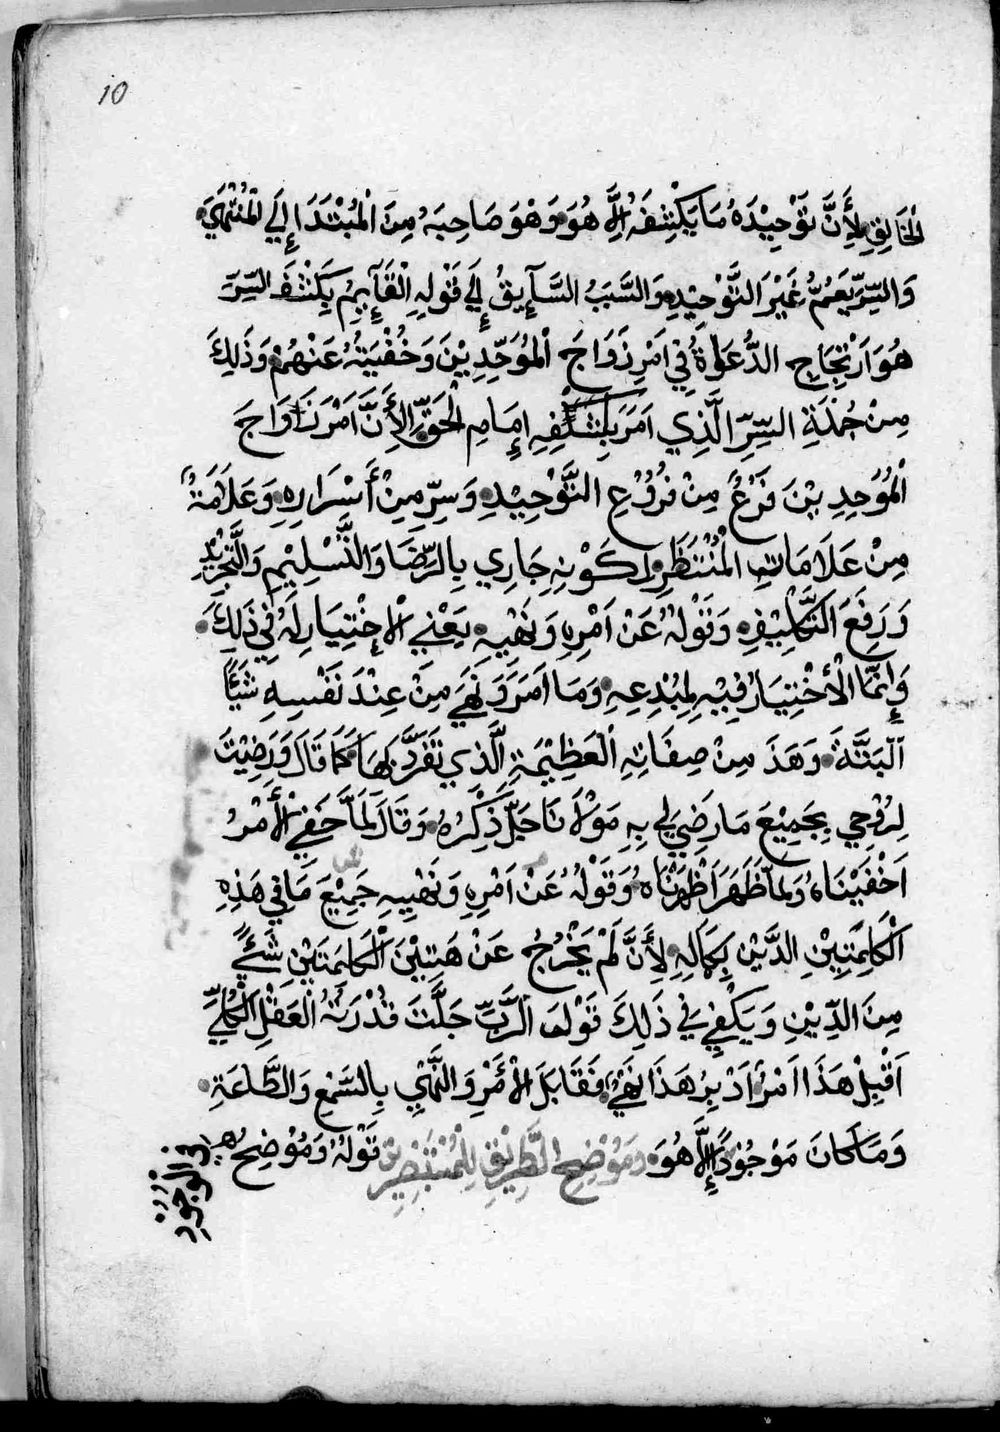 10
الْخَالِقِ لِأَنَّ تَوْحِيْدَهُ مَا يَكْشِفَهُ إِلَّا هُوَ وَهْوَ صَاحِبَهُ مِنَ الْمُبْتَدَا إِلَي الْمُنْتَهَيَ
وَالسِّرِّ يَعُمُّ غَيْرَ التَّوْحِيْدِ وَالسَّبَبُ السَّآئِقُ إِلَي قَوْلِهِ الْقَآئِمُ يَكْشُفَ السِّرَّ
هُوَ ارْتِجَاجِ الدُّعَاةُ فِي اَمْرِ زَوَاجَ الْمُوَحِّدِيْنَ وَخُفْيَتُهُ عَنْهُمْ وَذَلِكَ
مِنْ جُمْلَةِ السِّرِّ الَّذِي اَمَرَ بِكَشْفِهِ اِمَامِ الْحَقِّ لِأَنَّ اَمْرَ زَوَاجَ
الْمُوَحِدِيْنَ فَرْعٌ مِنْ فُرُوْعِ التَّوْحِيْدِ وَسِرٌّ مِنْ أَسْرَارِهِ وَعَلَامَةٌ
مِنْ عَلَامَاتِ الْمُنْتَظَرِ لِكَوْنِهِ جَارِي بِالرِّضَا وَالتَّسْلِيْمِ وَالتَّجْرِيْدِ
وَرَفْعَ التَّكْلِيْفِ وَقَوْلُهُ عَنْ اَمْرِهِ وَنَهْيِهِ يَعْنِي لَا اِخْتِيَارَ لَهُ فِي ذَلِكَ
وَاِنَّمَا الْاخْتِيَارُ فِيْهِ لِمُبْدِعِهِ وَمَا اَمَرَ وَنَهَيَ مِنْ عِنْدَ نَفْسِهِ شَيْأً
اَلْبَتَّةَ وَهَذَ مِنْ صِفَاتِهِ الْعَظِيْمَةِ الَّذِي تَفَرَّدَ بِهَا كَمَا قَالَ وَرَضِيْتَ
لِرُوْحِي بِجَمِيْعَ مَا رَضِيَ لِي بِهِ مَوْلَانَا جَلَّ ذِكْرُهُ وَقَالَ لَمَّا خَفِيَ الْأَمْرُ
اَخْفَيْنَاهُ وَلَمَّا ظَهَرَ اَظْهَرْنَاهُ وَقَوْلُهُ عَنْ اَمْرِهِ وَنَهْيِهِ جَمِيْعَ مَا فِي هَذِهِ
الْكَلِمَتِيْنِ الدِّيْنِ بِكَمَالِهِ لِأَنَّ لَمْ يَخْرُجُ عَنْ هَتِيْنَ الْكَلِمَتَيْنِ شَئٌ
مِنَ الدِّيْنِ وَيَكْفِي فِي ذَلِكَ قَوْلُهُ الرَّبِّ جَلَّتَ قُدْرَتُهُ الْعَقْلِ الْكُلِّيِّ
اَقْبِلْ هَذَا اَمْرٌ اَدْبِرْ هَذَا نَهْيٌ فَقَابَلَ الْأَمْرَ وَالنَّهْيَ بِالسَّمْعِ وَالطَّاعَةِ
وَمَا كَانَ مَوْجُوْدًا اِلَّا هُوَ وَمُوْضِحِ الطَّرِيْقِ لِلْمُسْتَبْصِرِيْنَ قَوْلُهُ وَمُوْضِحُ
فِي الْوُجُوْدِ